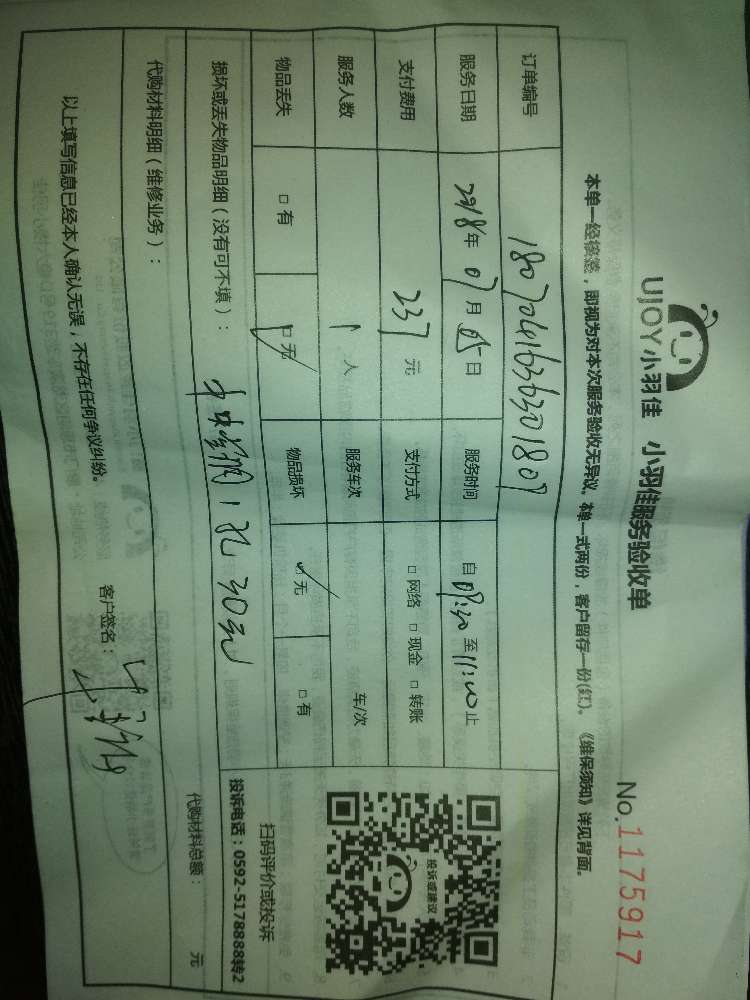 UJOY小羽佳 小羽佳服务验收单
No.1175917
本单一经接签，即视为对本次服务验收无异议。本单一式两份，客户留存一份(红)。《维保须知》详见背面。
订单编号
服务日期 2018年07月05日 服务时间 自 至11:00止
支付费用 237元 支付方式 □网络 □现金 □转账
服务人数 1人 服务车次 车/次
物品丢失 □有 □无 物品损坏 □无 □有
投诉或建议
扫码评价或投诉
投诉电话：0592-5178888转2
损坏或丢失物品明细（没有可不填）：
1孔30元
代购材料明细（维修业务）： 代购材料总额： 元
以上填写信息已经本人确认无误，不存在任何争议纠纷。 客户签名：